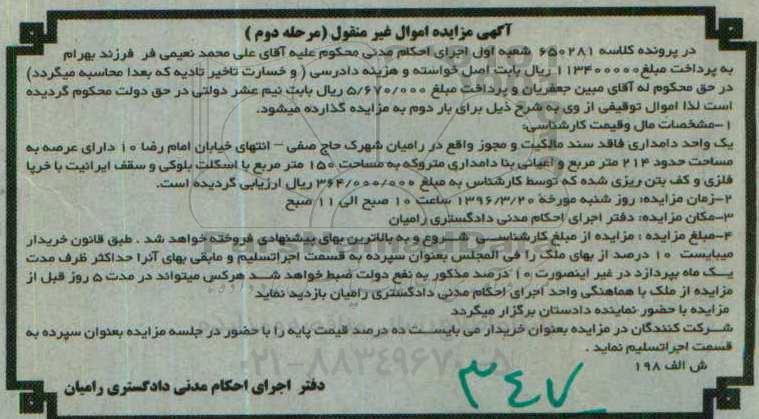 آگهی مزایده اموال غیر منقول (مرحله دوم )
در پرونده کلاسه ۶۵۰۲۸۱ شعبه اول اجرای احکام مدنی محکوم علیه آقای علی محمد نعیمی فر فرزند بهرام
به پرداخت مبلغ۱۱۳۴۰۰۰۰۰ ریال بابت اصل خواسته و هزینه دادرسی ( و خسارت تاخیر تادیه که بعدا محاسبه میگردد)
در حق محکوم له آقای مبین جعفریان و پرداخت مبلغ ۵/۶۷۰/۰۰۰ ریال بابت نیم عشر دولتی در حق دولت محکوم گردیده
است لذا اموال توقیفی از وی به شرح ذیل برای بار دوم به مزایده گذارده میشود.
۱-مشخصات مال وقیمت کارشناسی:
یک واحد دامداری فاقد سند مالکیت و مجوز واقع در رامیان شهرک حاج صفی – انتهای خیابان امام رضا ۱۰ دارای عرصه به
مساحت حدود ۲۱۴ متر مربع و اعیانی بنا دامداری متروکه به مساحت ۱۵۰ متر مربع با اسکلت بلوکی و سقف ایرانیت با خرپا
فلزی و کف بتن ریزی شده که توسط کارشناس به مبلغ ۳۶۴/۰۰۰/۰۰۰ ریال ارزیابی گردیده است.
۲-زمان مزایده: روز شنبه مورخه ۱۳۹۶/۳/۲۰ ساعت ۱۰ صبح الی ۱۱ صبح
۳-مکان مزایده: دفتر اجرای احکام مدنی دادگستری رامیان
۴-مبلغ مزایده : مزایده از مبلغ کارشناسی شروع و به بالاترین بهای پیشنهادی فروخته خواهد شد . طبق قانون خریدار
میبایست ۱۰ درصد از بهای ملک را فی المجلس بعنوان سپرده به قسمت اجراتسلیم و مابقی بهای آنرا حداکثر ظرف مدت
یک ماه بپردازد در غیر اینصورت ۱۰ درصد مذکور به نفع دولت ضبط خواهد شد هرکس میتواند در مدت ۵ روز قبل از
مزایده از ملک با هماهنگی واحد اجرای احکام مدنی دادگستری رامیان بازدید نماید
مزایده با حضور نماینده دادستان برگزار میگردد
شرکت کنندگان در مزایده بعنوان خریدار می بایست ده درصد قیمت پایه را با حضور در جلسه مزایده بعنوان سپرده به
قسمت اجراتسلیم نماید .
ش الف ۱۹۸
۳۴۷
دفتر اجرای احکام مدنی دادگستری رامیان
۰۲۱-۸۸۳۴۹۶۷۰-۵